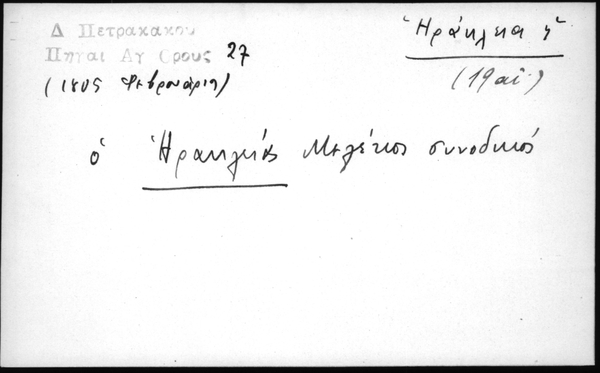 Δ Πετρακακου
Πηγαι Αγ Ορους 27
(1805 Φεβρουάριο)
Ἡράκλεια ἡ
(19 αἰ.)
ὁ Ἡρακλείας Μελέτιος συνοδικός